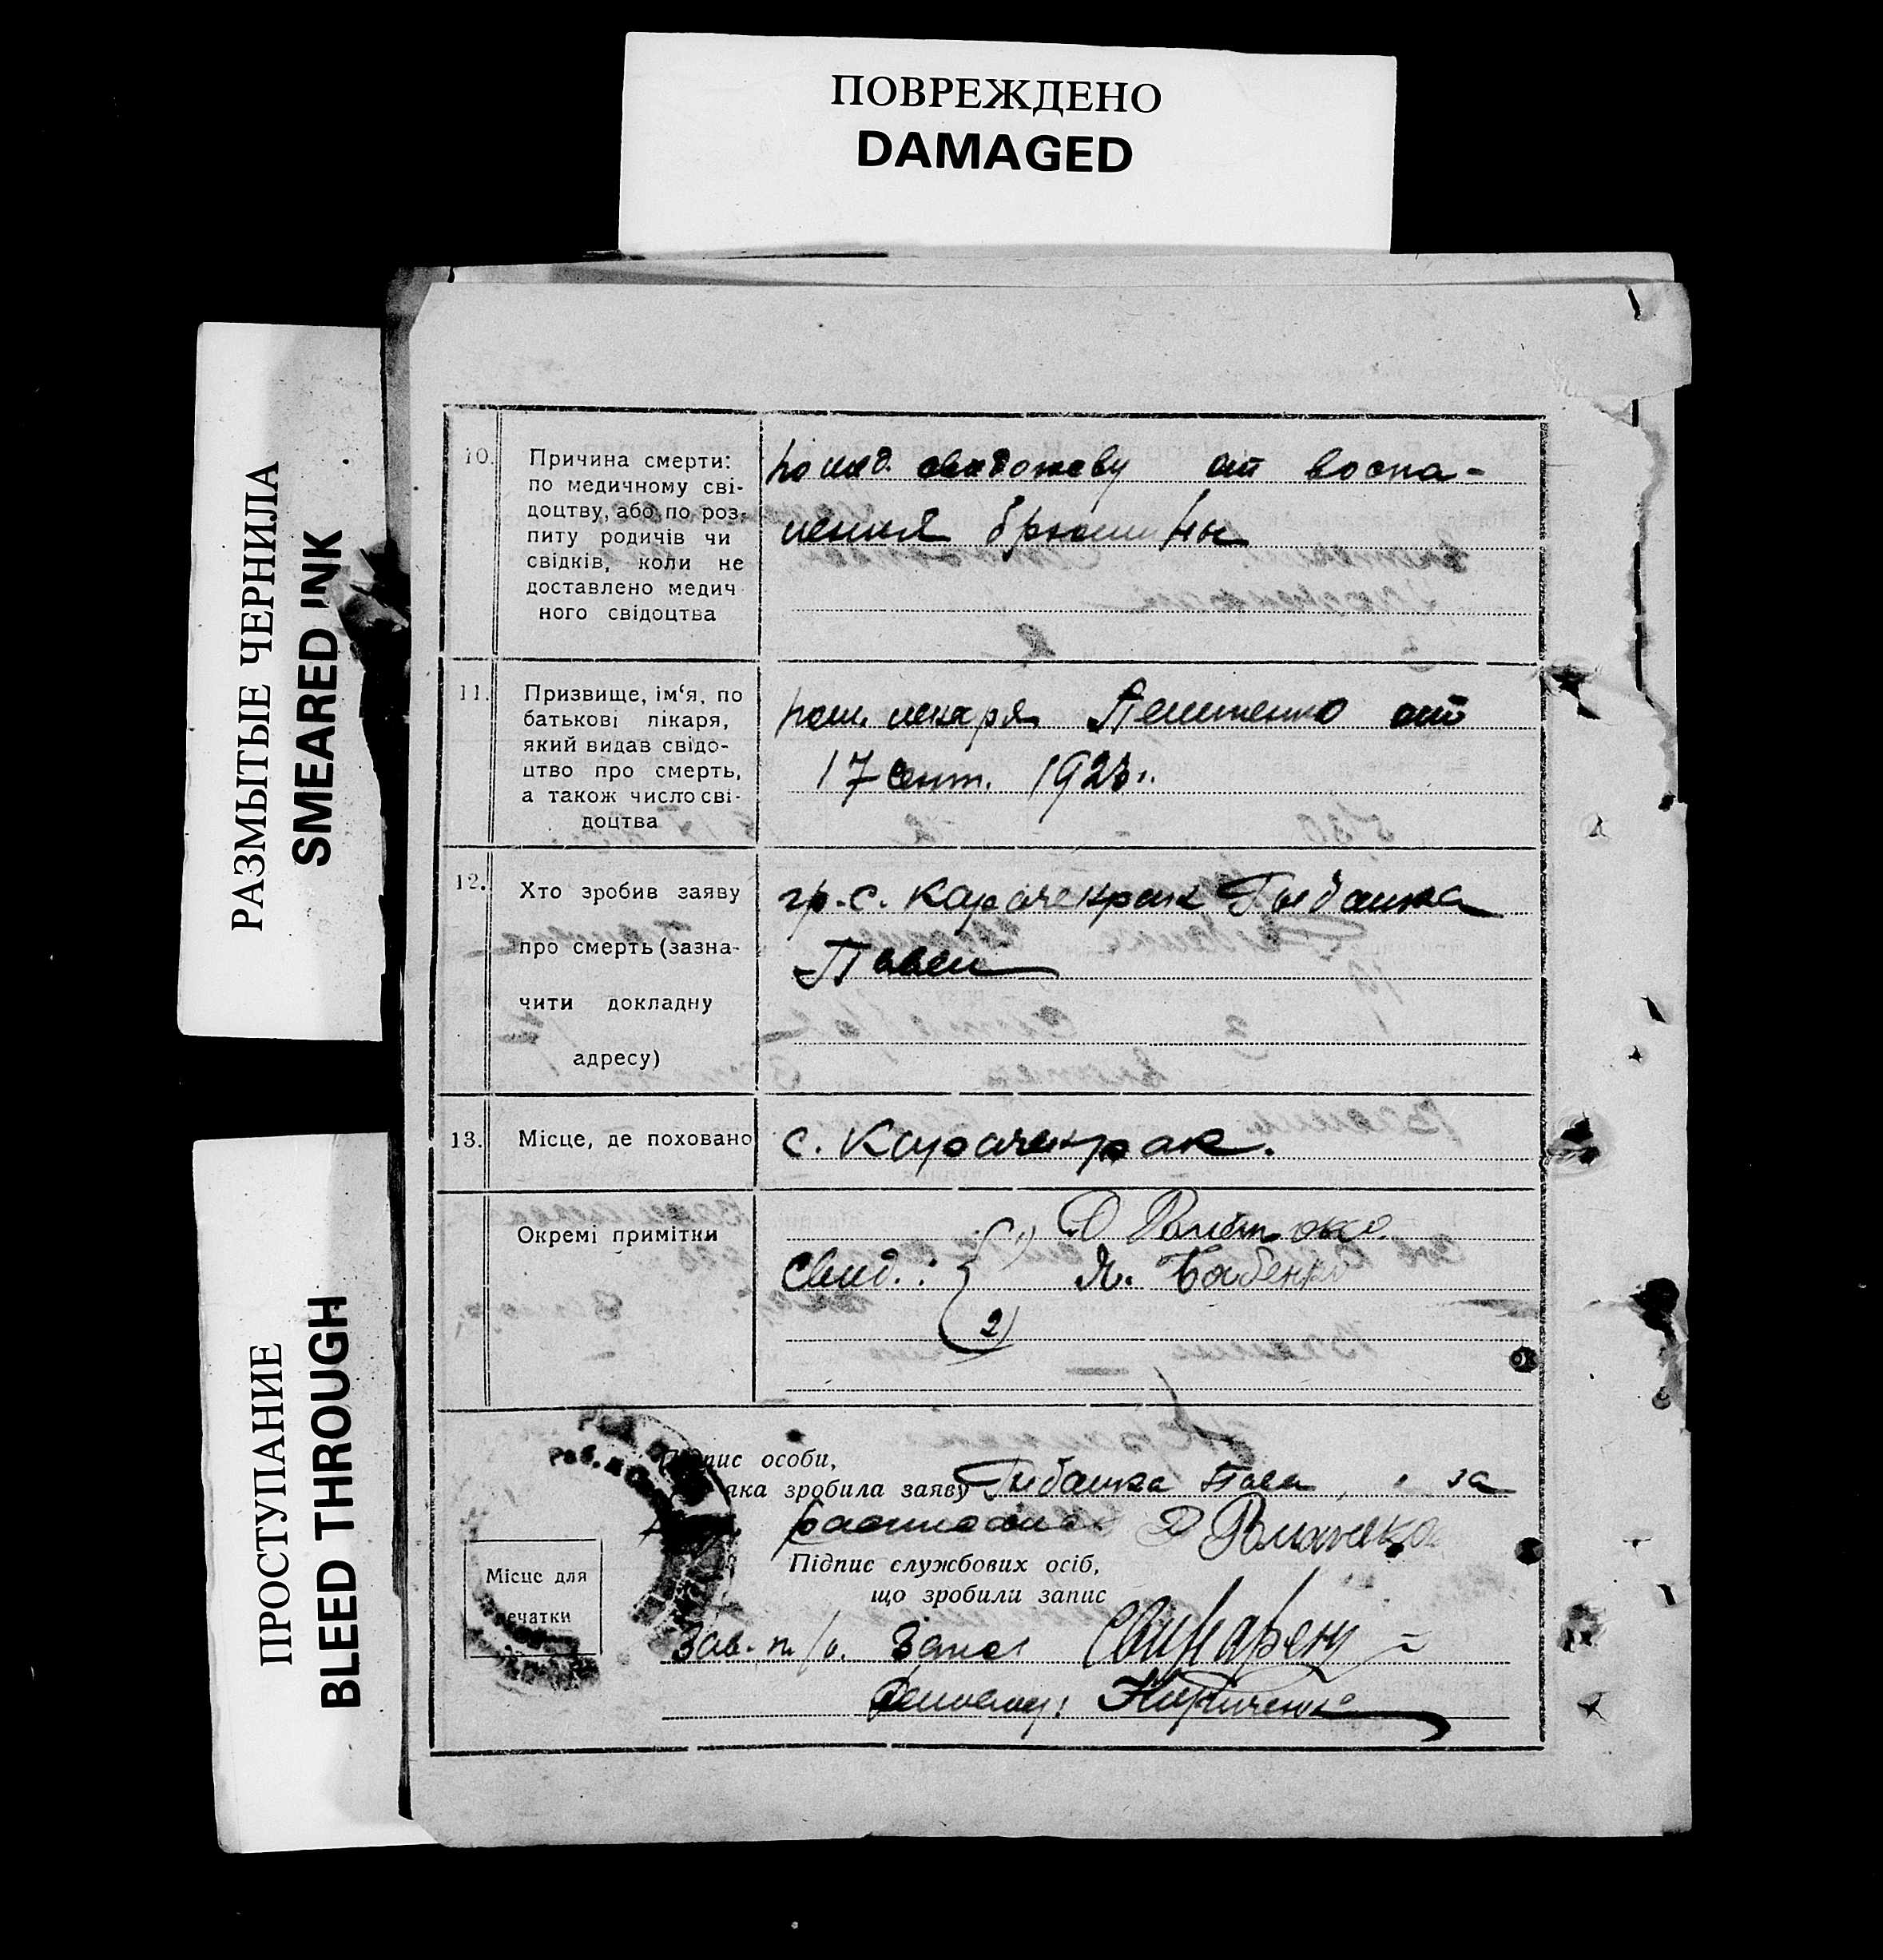 ПОВРЕЖДЕНО
DAMAGED
РАЗМЫТЫЕ ЧЕРНИЛА
SMEARED INK
ПРОСТУПАНИЕ
BLEED THROUGH
10. Причина смерти:
по медичному сві-
доцтву, або по роз-
питу родичів чи
свідків, коли не
доставлено медич
ного свідоцтва
по мед. от воспа-
ления брюшины
11. Призвище, ім‘я, по
батькові лікаря,
який видав свідо-
цтво про смерть,
а також число сві-
доцтва
лекаря от
17 сент. 192
12. Хто зробив заяву
про смерть (зазна-
чити докладну
адресу)
гр. с. Карачекрак Гибашка
Павел
13. Місце, де поховано
с. Карачекрак.
Окремі примітки
1)
Свид.: Я. Бабенко
2)
Підпис особи,
яка зробила заяву Гибашка Павел, за
Підпис службових осіб,
що зробили запис
Місце для
печатки
Зав. п/о. Загса
Кириченко